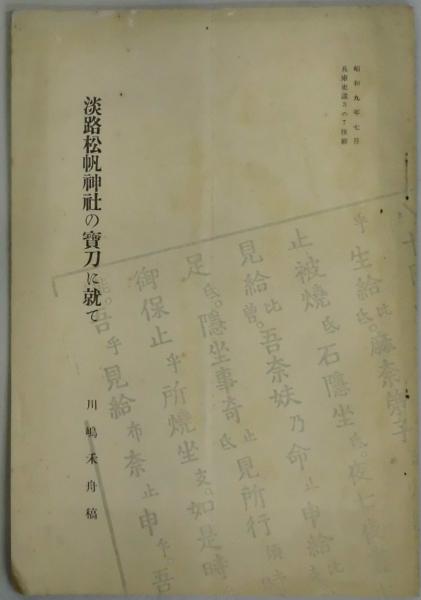 昭和九年七月
兵庫史談3の7抜刷
淡路松帆神社の寶刀に就て
川嶋禾舟稿
乎生給比氐。麻奈弟子
止被燒氐石隱坐氐。夜七
見給比曾。吾奈妋乃命止申給
足氐。隱坐事奇止見所行
御保止乎所燒坐支。如是時
吾乎見給布奈止申乎。吾